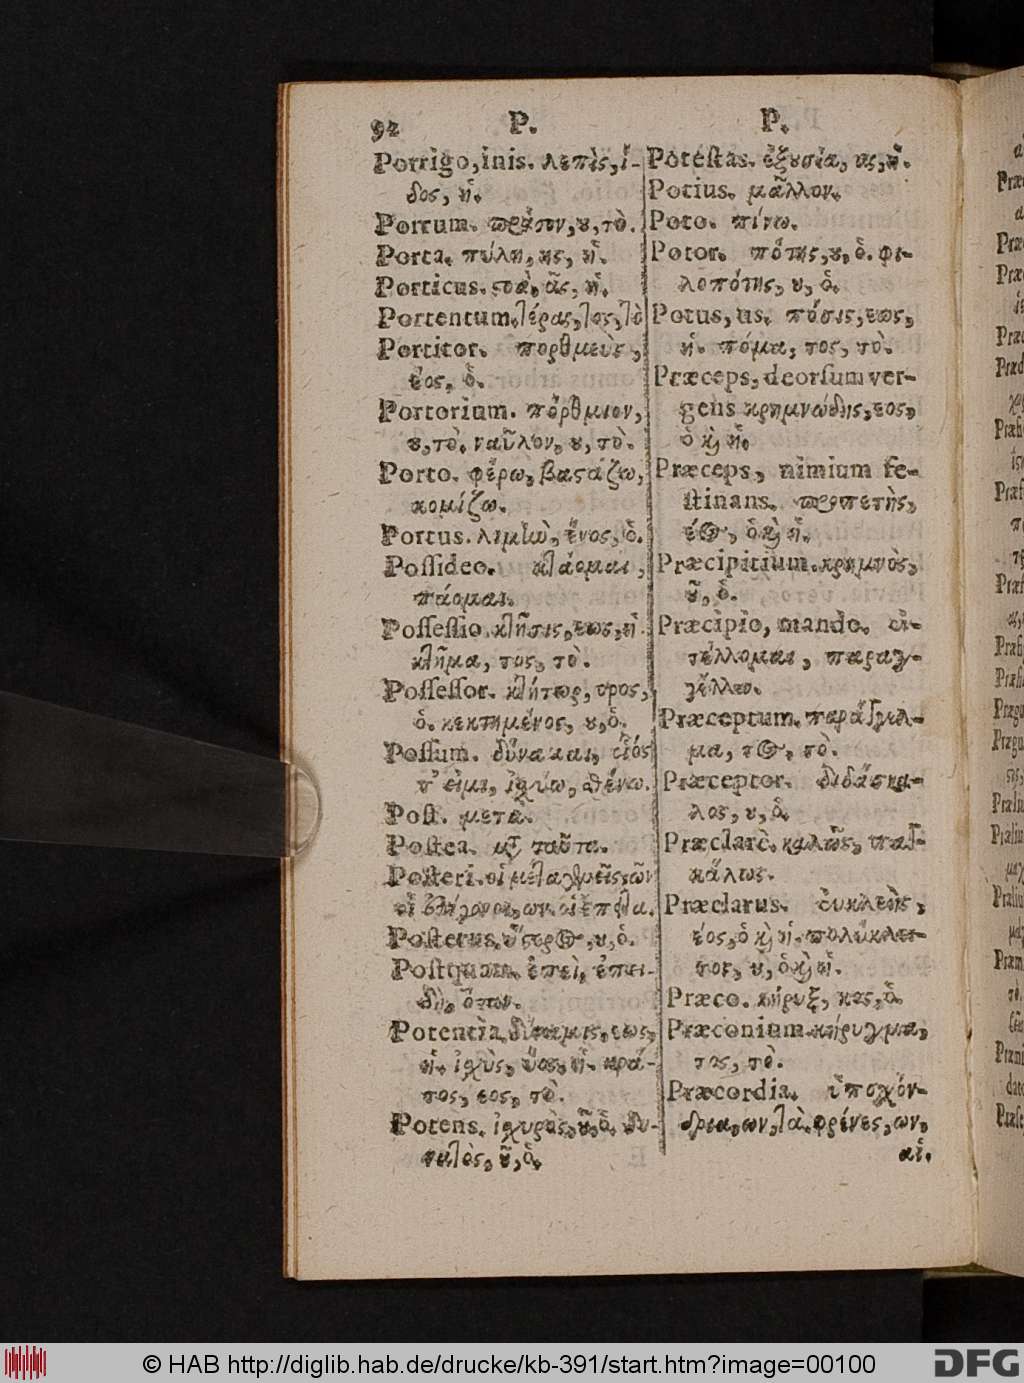 92 P. P.
Porrigo, inis. λεπὶς, ί-
δος, ἡ.
Porrum. πράσον, ου, τὸ.
Porta. πύλη, ης, ἡ.
Porticus. στοὰ, ᾶς, ἡ.
Portentum. τέρας, τος, τὸ
Portitor. πορθμεὺς,
έος, ὁ.
Portorium. πόρθμιον,
ου, τὸ. ναῦλον, ου, τὸ.
Porto. φέρω, βαστάζω,
κομίζω.
Portus. λιμὴν, ένος, ὁ.
Possideo. κτάομαι,
πάομαι.
Possessio. κτῆσις, εως, ἡ
κτῆμα, τος, τὸ.
Possessor. κτήτωρ, ορος,
ὁ. κεκτημένος, ου, ὁ.
Possum. δύναμαι, οἷός
τ' εἰμι, ἰσχύω, σθένω.
Post. μετὰ.
Postea. μετ ταῦτα.
Posteri. οἱ μεταγενεῖς, ῶν
οἱ ἐπίγονοι, ων. οἱ ἔπειτα.
Posterus. ὕστερος, ου, ὁ.
Postquam. ἐπεὶ, ἐπει-
δὴ, ὅταν.
Potentia. δύναμις, εως,
ἡ. ἰσχὺς, ύος, ἡ. κρά-
τος, εος, τὸ.
Potens. ἰσχυρὸς, οῦ, ὁ. δυ-
νατὸς, οῦ, ὁ.
Potestas. ἐξουσία, ας, ἡ.
Potius. μᾶλλον.
Poto. πίνω.
Potor. πότης, ου, ὁ. φι-
λοπότης, ου, ὁ.
Potus, us. πόσις, εως,
ἡ. πόμα, τος, τὸ.
Præceps, deorſum ver-
gens κρημνώδης, εος,
ὁ καὶ ἡ.
Præceps, nimium fe-
ſtinans. προπετὴς,
έος, ὁ καὶ ἡ.
Præcipitium. κρημνὸς,
οῦ, ὁ.
Præcipio, mando. ἐν-
τέλλομαι, παραγ-
γέλλω.
Præceptum. παράγγελ-
μα, τος, τὸ.
Præceptor. διδάσκα-
λος, ου, ὁ.
Præclarè. καλῶς, παγ-
κάλως.
Præclarus. εὐκλεὴς,
έος, ὁ καὶ ἡ. πολύκλει-
τος, ου, ὁ καὶ ἡ.
Præco. κήρυξ, κος, ὁ.
Præconium. κήρυγμα,
τος, τὸ.
Præcordia. ὑποχόν-
δρια, ων, τὰ. φρένες, ων,
αἱ.
© HAB http://diglib.hab.de/drucke/kb-391/start.htm?image=00100
DFG